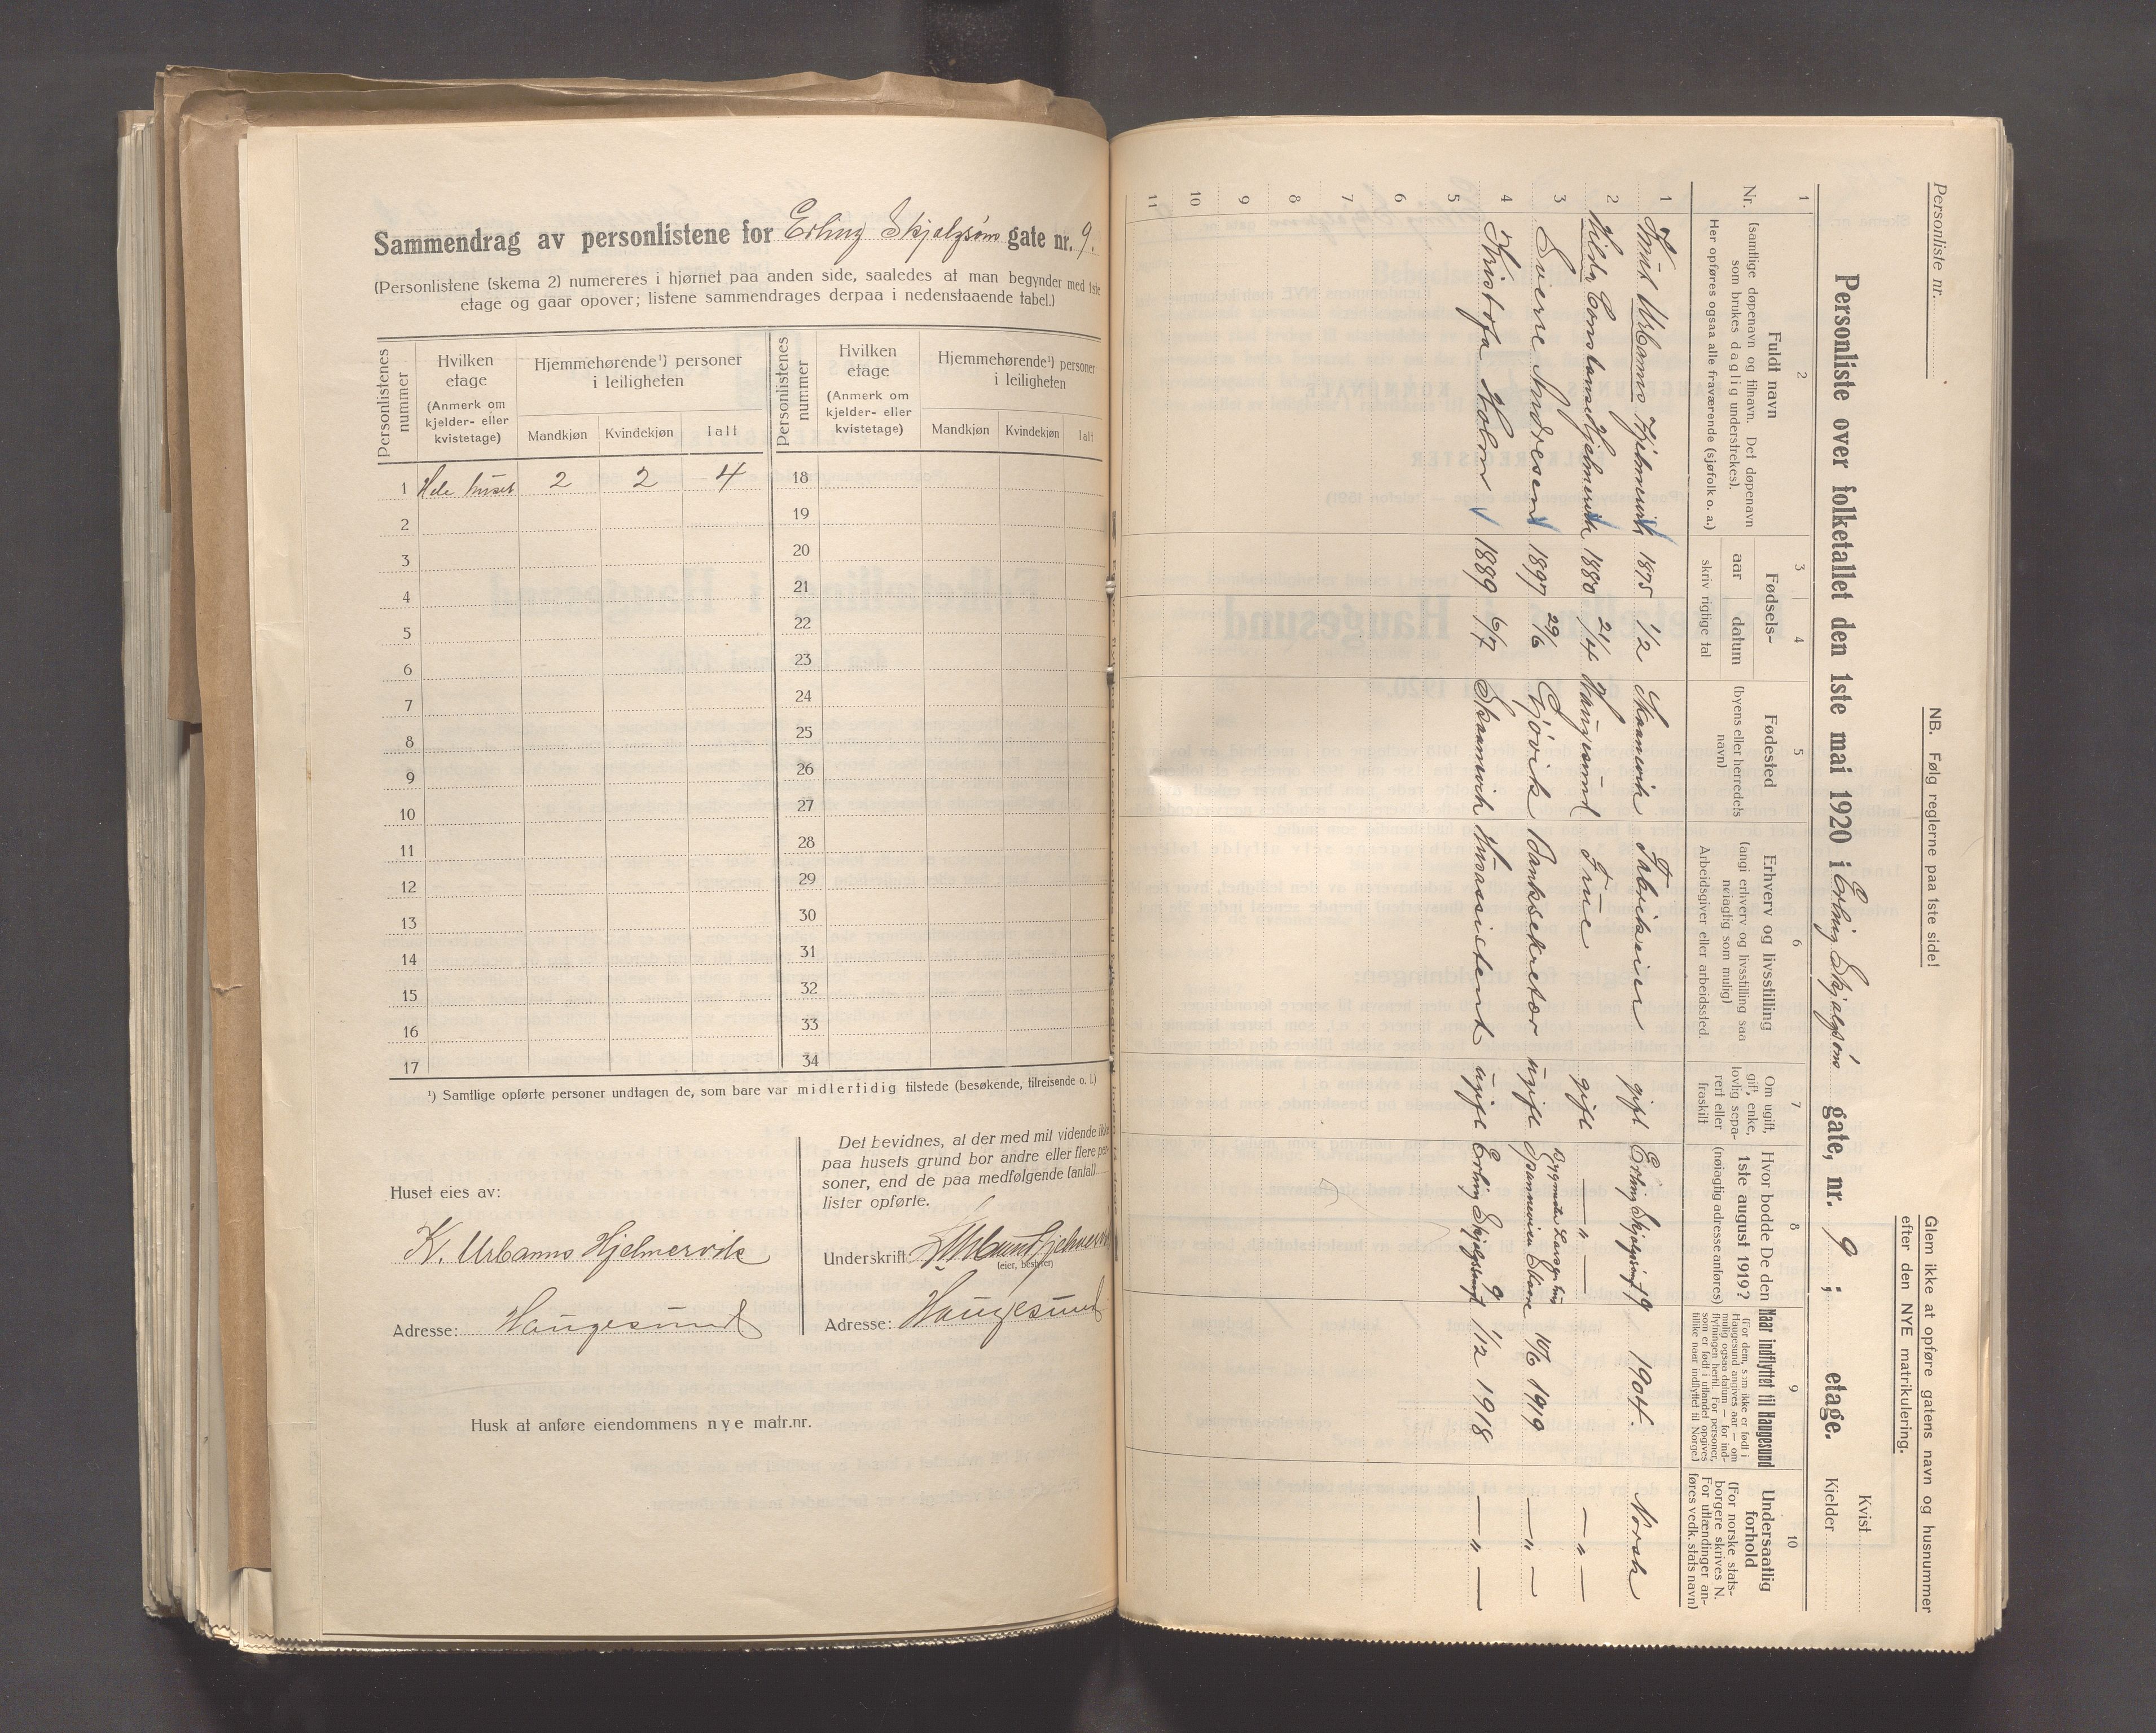 Sammendrag av personlistene for Erling Skjalgsøns gate nr. 9.
(Personlistene (skema 2) numereres i hjørnet paa anden side, saaledes at man begynder med 1ste
etage og gaar opover; listene sammendrages derpaa i nedenstaaende tabel.)
Personlistenes nummer
Hvilken etage
(Anmerk om kjelder- eller kvistetage)
Hjemmehørende¹) personer i leiligheten
Mandkjøn Kvindekjøn Ialt
Personlistenes nummer
Hvilken etage
(Anmerk om kjelder- eller kvistetage)
Hjemmehørende¹) personer i leiligheten
Mandkjøn Kvindekjøn Ialt
1 Hele huset 2 2 4 18
2 19
3 20
4 21
5 22
6 23
7 24
8 25
9 26
10 27
11 28
12 29
13 30
14 31
15 32
16 33
17 34
¹) Samtlige opførte personer undtagen de, som bare var midlertidig tilstede (besøkende, tilreisende o. l.)
Huset eies av:
K. Urbanus Hjelmervik
Adresse: Haugesund
Det bevidnes, at der med mit vidende ikke
paa husets grund bor andre eller flere per-
soner, end de paa medfølgende (antal)
lister opførte.
Underskrift: K Urbanus Hjelmervik
(eier, bestyrer)
Adresse: Haugesund
Husk at anføre eiendommens nye matr.nr.
Personliste nr.
NB. Følg reglerne paa 1ste side!
Glem ikke at opføre gatens navn og husnummer
efter den NYE matrikulering.
Personliste over folketallet den 1ste mai 1920 i Erling Skjalgsøns gate, nr. 9 ; etage.
Kvist
Kjelder
1 2 3 4 5 6 7 8 9 10
Nr.
Fuldt navn
(samtlige døpenavn og tilnavn. Det døpenavn
som brukes daglig understrekes).
Her opføres ogsaa alle fraværende (sjøfolk o. a.)
Fødsels-
aar datum
skriv rigtige tal
Fødested
(byens eller herredets
navn)
Erhverv og livsstilling
(angi erhverv og livsstilling saa
nøiagtig som mulig)
Arbeidsgiver eller arbeidssted.
Om ugift,
gift, enke,
lovlig sepa-
rert eller
fraskilt
Hvor bodde De den
1ste august 1919?
(nøiagtig adresse anføres)
Naar indflyttet til Haugesund
(For dem, som ikke er født i
Haugesund angives aar — om
mulig ogsaa datum — for ind-
flytningen hertil. For personer,
som er født i utlandet opgives
tillike naar indflyttet til Norge)
Undersaatlig
forhold
(For norske stats-
borgere skrives N.
For utlændinger an-
føres vedk. stats navn)
1 Knut Urbanus Hjelmervik 1875 1/2 Skaanevik Fabrikeier gift Erling Skjalgsensgt 9 1904. Norsk
2 Hilda Constanse Hjelmervik 1880 21/4 Haugesund Frue gift — " — — " —
3 Sverre Andresen 1897 29/6 Gjøvik Banksekretær ugift 10/6 1919 — " —
4 Kristofa Holm 1889 6/7 Skaanevik Husassistent ugift Erling Skjalgssensgt 9 1/12 1918 — " —
5
6
7
8
9
10
11